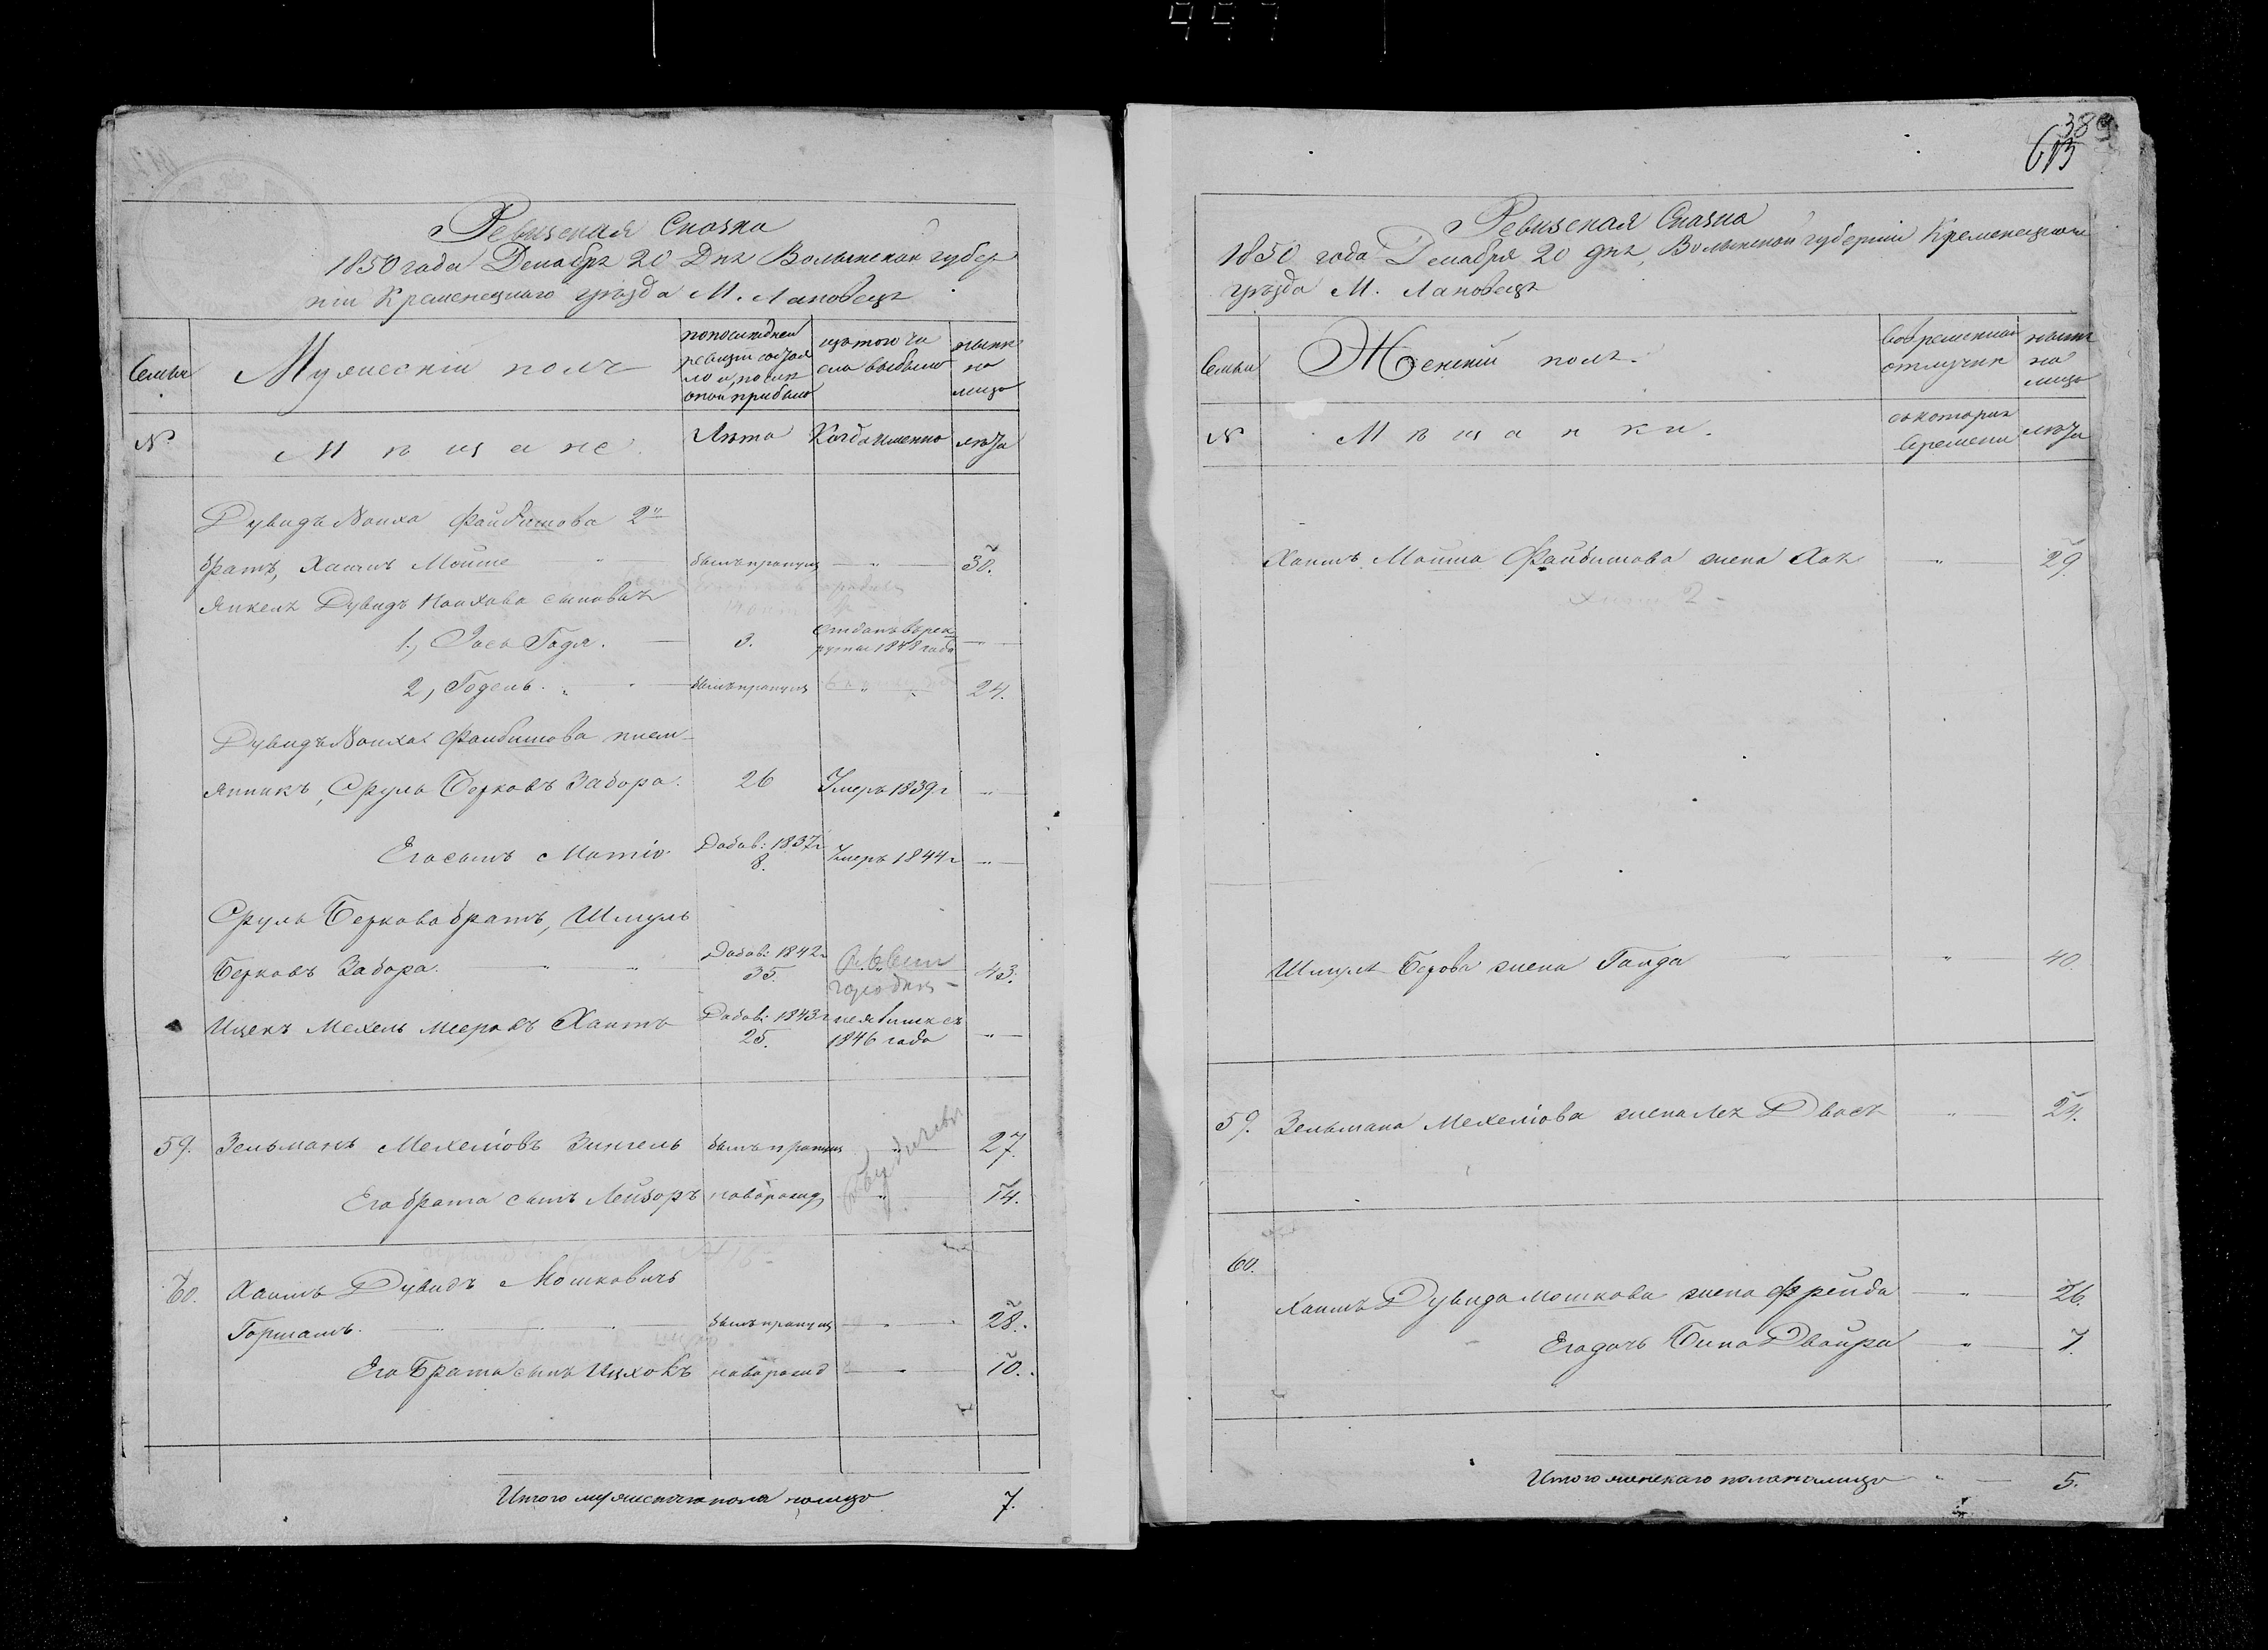 Ревизская Сказка
1850 года Декабря 20 Дня Волынской губер
нии Кременецкаго уѣзда М. Лановецъ
Семьи
Мужескій полъ
по последней
ревизіи состоя
ло и после
оной прибыло
изъ того чи
сла выбыло
нынѣ
на
лицо
№
Мѣщане
Лѣта
Когда именно
лѣта
Дувидъ Ноиха Файбишова 2й
братъ, Хаимъ Мойше
былъ пропущ
30.
Янкель Дувидъ Ноихова сыновья
1, Іось Годя.
3.
Отданъ въ рек
руты 1848 года
2, Годель.
былъ пропущ
24.
Дувидъ Ноиха Файбишова плем-
янникъ, Сруль Берковъ Забора.
26
Умеръ 1839 г
Его сынъ Мотіо
Добав: 1837 г
8.
Умеръ 1844 г
Сруля Беркова братъ, Шмуль
Берковъ Забора.
Добав: 1842 г
35.
43.
Ицекъ Мехель Мееровъ Хаитъ
Добав: 1843 г
25.
неявился съ
1846 года
59.
Зельманъ Мехелювъ Зингель
былъ пропущ
27.
Его брата сынъ Лейзоръ
новорожд
14.
60.
Хаимъ Дувидъ Мошковичъ
Горшамъ.
былъ пропущ
28.
Его Брата сынъ Ицховъ
новорожд
10.
Итого мужескаго пола налицо
7.
389
613
Ревизская Сказка
1850 года Декабря 20 дня, Волынской губерніи Кременецкаго
уѣзда М. Лановецъ
Семьи
Женскій полъ.
Во временной
отлучке
нынѣ
на
лицо
№
Мѣщанки.
съ котораго
Времени
лѣта
Хаимъ Мойша Файбишова жена Хая
29.
Шмуля Беровъ жена Гайда
40.
59.
Зельмана Мехелюва жена Лея Двося
24.
60.
Хаимъ Дувида Мошкова жена Фрейда
26.
Его дочь Бина Двойра
7.
Итого женскаго пола налицо
5.